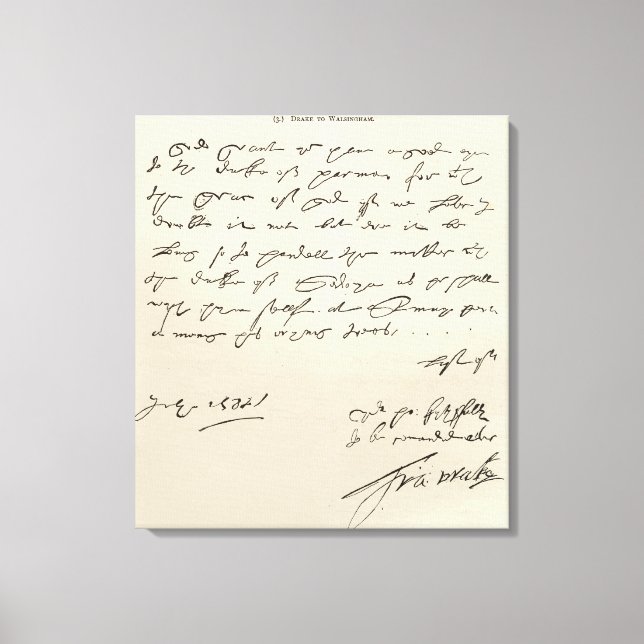 (3.) DRAKE TO WALSINGHAM.
God Grant we have a good eye
to the duke of parma for with
the Grace of God yf we live I
doubt it not but ere it be
long so to handell the matter with
the duke of Sedonya as he shall
wish hym sellf at S mary port
among his orynge trees, . . . . .
July 1588
to be comanded
Fra: Drake